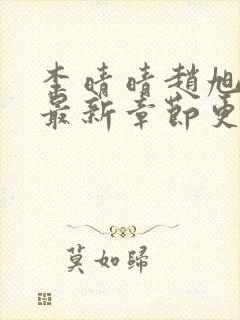 李晴晴趙旭
最新章節更
莫如歸